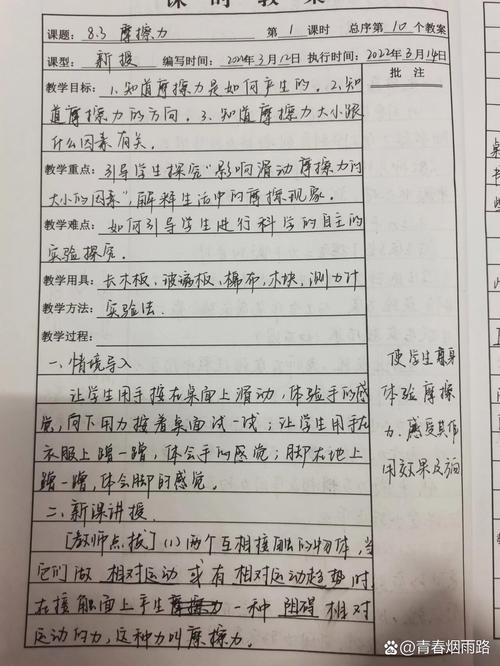 课时教案
课题：8.3 摩擦力 第1课时 总序第10个教案
课型：新授 编写时间：2022年3月12日 执行时间：2022年3月14日
教学目标：1.知道摩擦力是如何产生的.2.知
批注
道摩擦力的方向.3.知道摩擦力大小跟
什么因素有关.
教学重点：引导学生探究“影响滑动摩擦力的
大小的因素”，解释生活中的摩擦现象.
教学难点：如何引导学生进行科学的自主的
实验探究.
教学用具：长木板，玻璃板，棉布，木块，测力计
教学方法：实验法.
教学过程：
一、情境导入
让学生用手按在桌面上滑动，体验手的感
觉，向下用力按着桌面试一试；让学生用手在
衣服上蹭一蹭，体会手的感觉；脚在地上
蹭一蹭，体会脚的感觉.
二、新课讲授
[教师点拨](1)两个互相接触的物体，当
它们做 相对运动 或有 相对运动趋势时，
在接触面上产生摩擦力一种 阻碍 相对
运动的力，这种力叫摩擦力.
使学生亲身
体验摩擦
力.感受其作
用效果及
@青春烟雨路